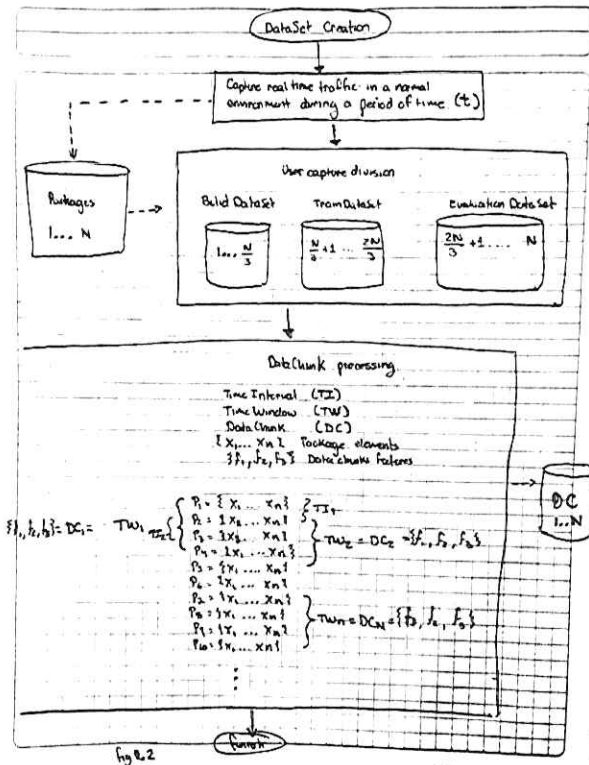 DataSet Creation
Capture real time traffic in a normal
environment during a period of time (t)
User capture division
Packages
1... N
Build DataSet
1... N/3
Train DataSet
N/3 +1 ... 2N/3
Evaluation DataSet
2N/3 +1 .... N
DataChunk processing
Time Interval (TI)
Time Window (TW)
DataChunk (DC)
{x1... xn} Package elements
{f1, f2, f3} Data chunks features
DC
1..N
{f1, f2, f3} = DC1 = TW1
TI2
P1 = {x1 ... xn}
P2 = {x1 ... xn}
P3 = {x1 ... xn}
P4 = {x1 ... xn}
P5 = {x1 ... xn}
P6 = {x1 ... xn}
P7 = {x1 ... xn}
P8 = {x1 ... xn}
P9 = {x1 ... xn}
P10 = {x1 ... xn}
TI1
TW2 = DC2 = {f1, f2, f3}
TWn = DCN = {f1, f2, f3}
finish